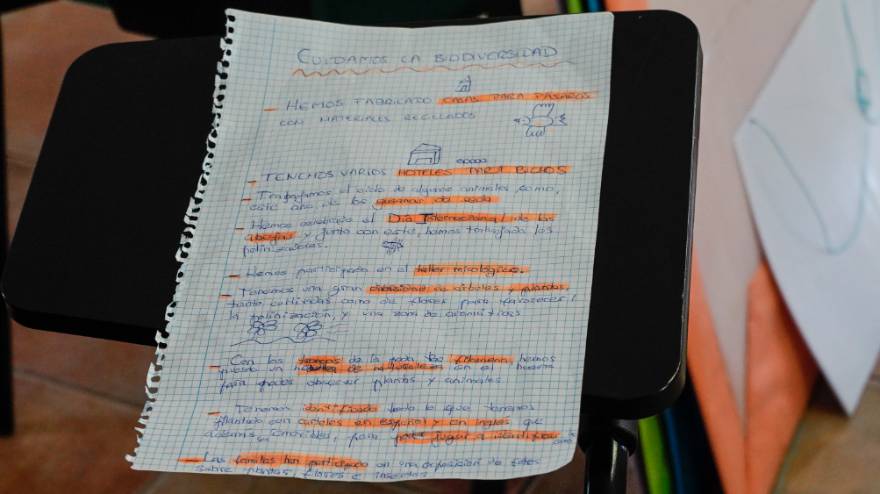 CUIDAMOS LA BIODIVERSIDAD
- HEMOS FABRICADO CASAS PARA PÁJAROS
CON MATERIALES RECICLADOS
- TENEMOS VARIOS HOTELES PARA BICHOS
- Trabajamos el ciclo de algunos animales como,
este año de los gusanos de seda
- Hemos celebrado el Día Internacional de las
abejas y junto con esto, hemos trabajado los
polinizadores.
- Hemos participado en el taller micológico.
- Tenemos una gran de árboles y plantas,
tanto cultivadas como de flores para favorecer
la polinización, y una zona de aromáticas
- Con los troncos de la poda de hemos
puesto un de en el huerto
para poder observar plantas y animales
- Tenemos identificado todo lo que tenemos
plantado con carteles en español y en inglés que
además son movibles, para poder jugar a identificar
- Las familias han participado en una exposición de fotos
sobre plantas, flores e insectos